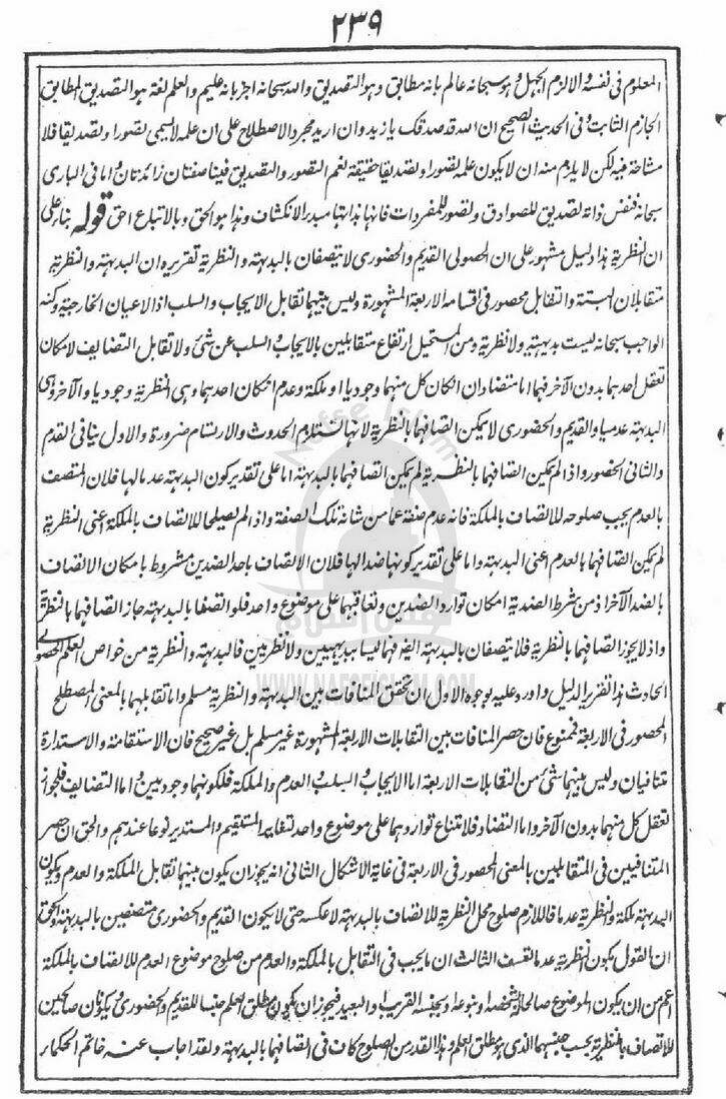 ٢٣٩
المعلوم فى نفسه والا لزم الجهل وهو سبحانه عالم بانه مطابق وهو التصديق والله سبحانه اخبر بانه عليم والعلم لغة هو التصديق المطابق
الجازم الثابت وفى الحديث الصحيح ان الله قد صدقك يا زيد وان اريد مجرد الاصطلاح على ان علمه لا يسمى تصورا وتصديقا فلا
مشاحة فيه لكن لا يلزم منه ان لا يكون علمه تصورا وتصديقا حقيقة نعم التصور والتصديق فينا صفتان زائدتان واما فى البارى
سبحانه فنفس ذاته تصديق للصوادق وتصور للمفردات فانها بذاتها مبدء الانكشاف وهذا هو الحق وبالاتباع احق قوله بناء على
ان النظرية هذا دليل مشهور على ان الحصولى القديم والحضورى لا يتصفان بالبديهة والنظرية تقريره ان البديهة والنظرية
متقابلان البتة والتقابل محصور فى اقسامه الاربعة المشهورة وليس بينهما تقابل الايجاب والسلب اذ الاعيان الخارجية وكنه
الواجب سبحانه ليست بديهية ولا نظرية ومن المستحيل ارتفاع متقابلين بالايجاب والسلب عن شئ ولا تقابل التضايف لامكان
تعقل احدهما بدون الآخر فهما اما متضادان ان كان كل منهما وجوديا او ملكة وعدم ان كان احدهما وهى النظرية وجوديا والآخر وهى
البديهة عدميا والقديم والحضورى لا يمكن اتصافهما بالنظرية لانها تستلزم الحدوث والارتسام ضرورة والاول ينافى القدم
والثانى الحضور واذا لم يمكن اتصافهما بالنظرية لم يمكن اتصافهما بالبديهة اما على تقدير كون البديهة عدما لها فلان المتصف
بالعدم يجب صلوحه للاتصاف بالملكة فانه عدم صفة عما من شانه تلك الصفة واذ لم يصلحا للاتصاف بالملكة اعنى النظرية
لم يمكن اتصافهما بالعدم اعنى البديهة واما على تقدير كونها ضدا لها فلان الاتصاف باحد الضدين مشروط بامكان الاتصاف
بالضد الآخر اذ من شرط الضدية امكان توارد الضدين وتعاقبهما على موضوع واحد فلو اتصفا بالبديهة جاز اتصافهما بالنظرية
واذ لا يجوز اتصافهما بالنظرية فلا يتصفان بالبديهة ايضا فهما ليسا بديهيين ولا نظريين فالبديهة والنظرية من خواص العلم الحصولى
الحادث هذا تقرير الدليل واورد عليه بوجوه الاول ان تحقق المنافات بين البديهة والنظرية مسلم واما تقابلهما بالمعنى المصطلح
المحصور فى الاربعة فممنوع فان حصر المنافات بين التقابلات الاربعة المشهورة غير مسلم بل غير صحيح فان الاستقامة والاستدارة
متنافيان وليس بينهما شئ من التقابلات الاربعة اما الايجاب والسلب والعدم والملكة فلكونهما وجوديين واما التضايف فلجواز
تعقل كل منهما بدون الآخر واما التضاد فلامتناع تواردهما على موضوع واحد لتغاير المستقيم والمستدير نوعا عندهم والحق ان حصر
المتنافيين فى المتقابلين بالمعنى المحصور فى الاربعة فى غاية الاشكال الثانى انه يجوز ان يكون بينهما تقابل الملكة والعدم ويكون
البديهة ملكة والنظرية عدما فاللازم صلوح محل النظرية للاتصاف بالبديهة لا عكسه حتى لا يكون القديم والحضورى متصفين بالبديهة والحق
ان القول بكون النظرية عدما تعسف الثالث ان ما يجب فى التقابل بالملكة والعدم من صلوح موضوع العدم للاتصاف بالملكة
اعم من ان يكون الموضوع صالحا بشخصه او بنوعه او بجنسه القريب او البعيد فيجوز ان يكون مطلق العلم جنسا للقديم والحضورى ويكونان صالحين
للاتصاف بالنظرية بحسب جنسهما الذى هو مطلق العلم وهذا القدر من الصلوح كاف فى اتصافهما بالبديهة ولقد اجاب عنه خاتم الحكماء
Nafse Islam
نفس اسلام
WWW.NAFSEISLAM.COM